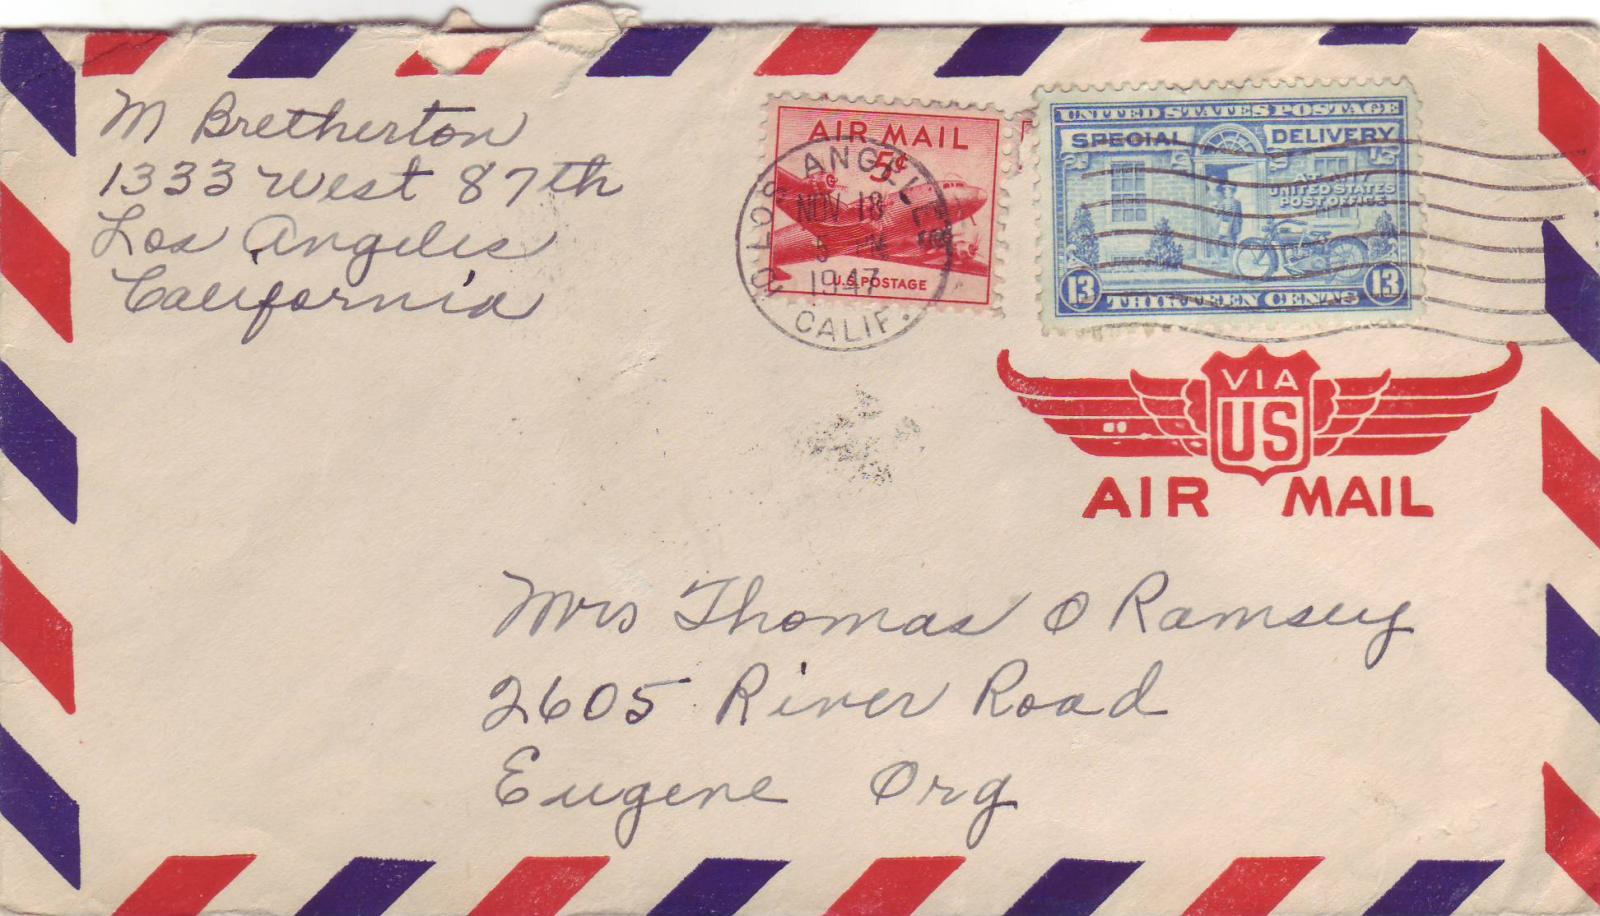 M Bretherton
1333 West 87th
Los Angeles
California
AIR MAIL
5¢
U.S. POSTAGE
LOS ANGELES
NOV 18
5
1947
CALIF.
UNITED STATES POSTAGE
SPECIAL DELIVERY
AT ANY
UNITED STATES
POST OFFICE
13 THIRTEEN CENTS 13
VIA
US
AIR MAIL
Mrs Thomas O Ramsey
2605 River Road
Eugene Org